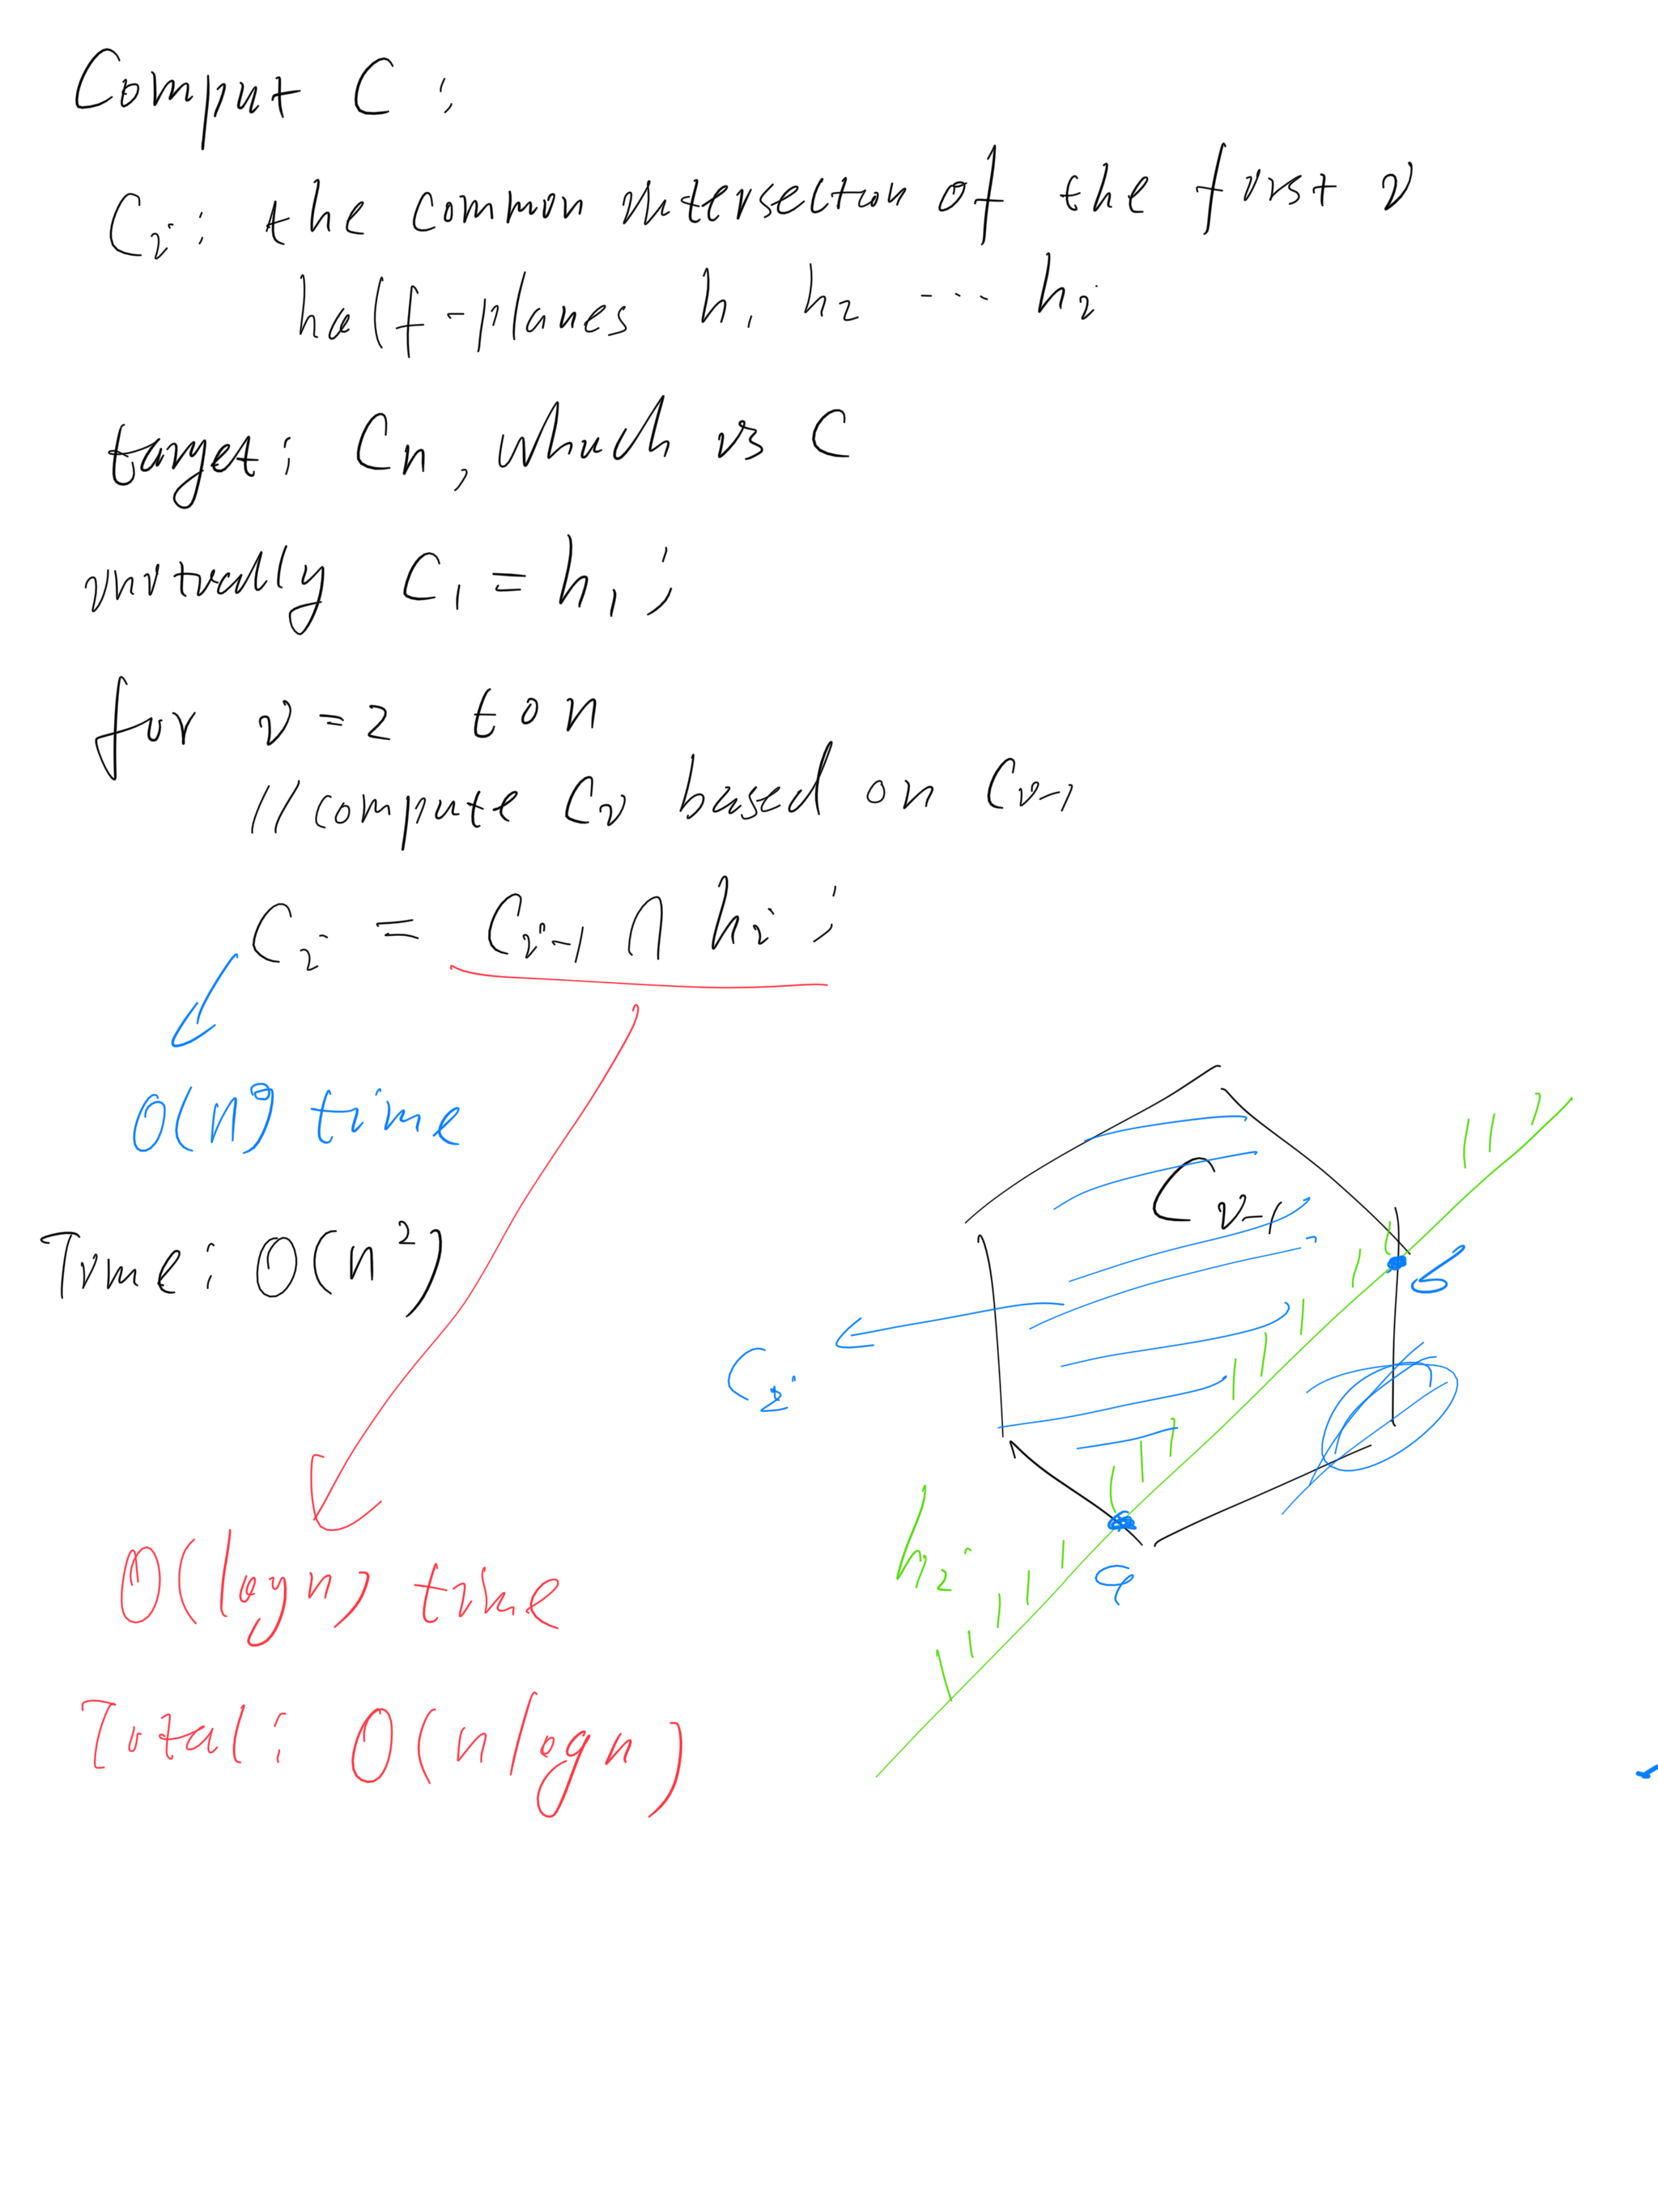 Comput C:
Ci: the common intersection of the first i
half-planes h1 h2 ... hi
target: Cn, which is C
initially C1 = h1;
for i=2 to n
//compute Ci based on Ci-1
Ci = Ci-1 ∩ hi;
O(n) time
Ci-1
Time: O(n²)
b
Ci
hi
a
O(logn) time
Total: O(nlogn)